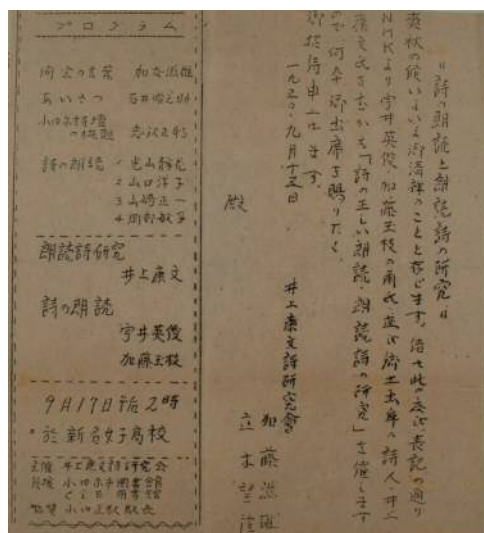 〃詩の朗読と朗読詩の研究〃
爽秋の候いよいよ御清祥のことと存じます。偖て此の度は表記の通り
NHKより宇井英俊、加藤玉枝の両氏並び郷土出身の詩人、井上
康文氏をむかえ「詩の正しい朗読、朗読詩の研究」を催します
ので、何卒御出席を賜りたく、
御招待申上げます。
一九五〇、九月十五日
井上康文詩研究会
加藤
立木望
殿
プログラム
開会の言葉 加藤
あいさつ 石井
小田原詩壇の
詩の朗読 1
2 山口洋子
3 山崎正一
4
朗読詩研究
井上康文
詩の朗読
宇井英俊
加藤玉枝
9月17日午后2時
於 新名女子高校
主催 井上康文詩研究会
后援 小田原市図書館
CIE図書館
小田原駅長